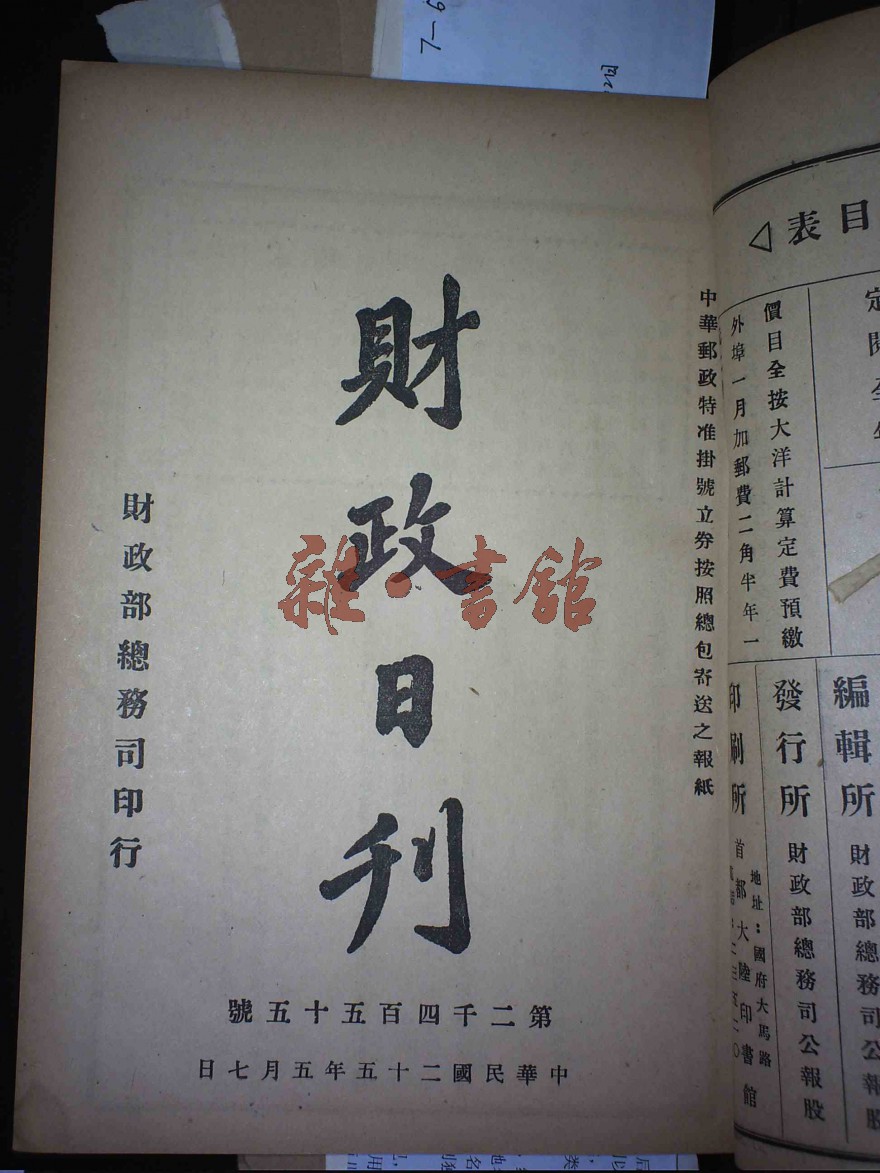 財政日刊
財政部總務司印行
第二千四百五十五號
中華民國二十五年五月七日
中華郵政特准掛號立券按照總包寄送之報紙
雜·書館
目表
價目全按大洋計算定費預繳
外埠一月加郵費二角半年一
編輯所
財政部總務司公報股
發行所
財政部總務司公報股
印刷所
首都大陸印書館
地址：國府大馬路